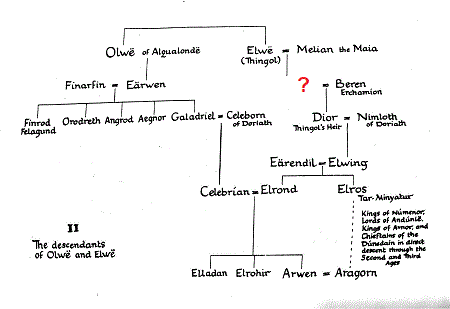 Olwë of Alqualondë
Elwë = Melian the Maia
(Thingol)
Finarfin = Eärwen
? = Beren
Erchamion
Finrod
Felagund
Orodreth
Angrod
Aegnor
Galadriel = Celeborn
of Doriath
Dior = Nimloth
Thingol's Heir
of Doriath
Eärendil = Elwing
Celebrían = Elrond
Elros
Tar-Minyatur
Kings of Númenor,
Lords of Andúnië,
Kings of Arnor, and
Chieftains of the
Dúnedain in direct
descent through the
Second and Third
Ages
II
The descendants
of Olwë and Elwë
Elladan
Elrohir
Arwen = Aragorn